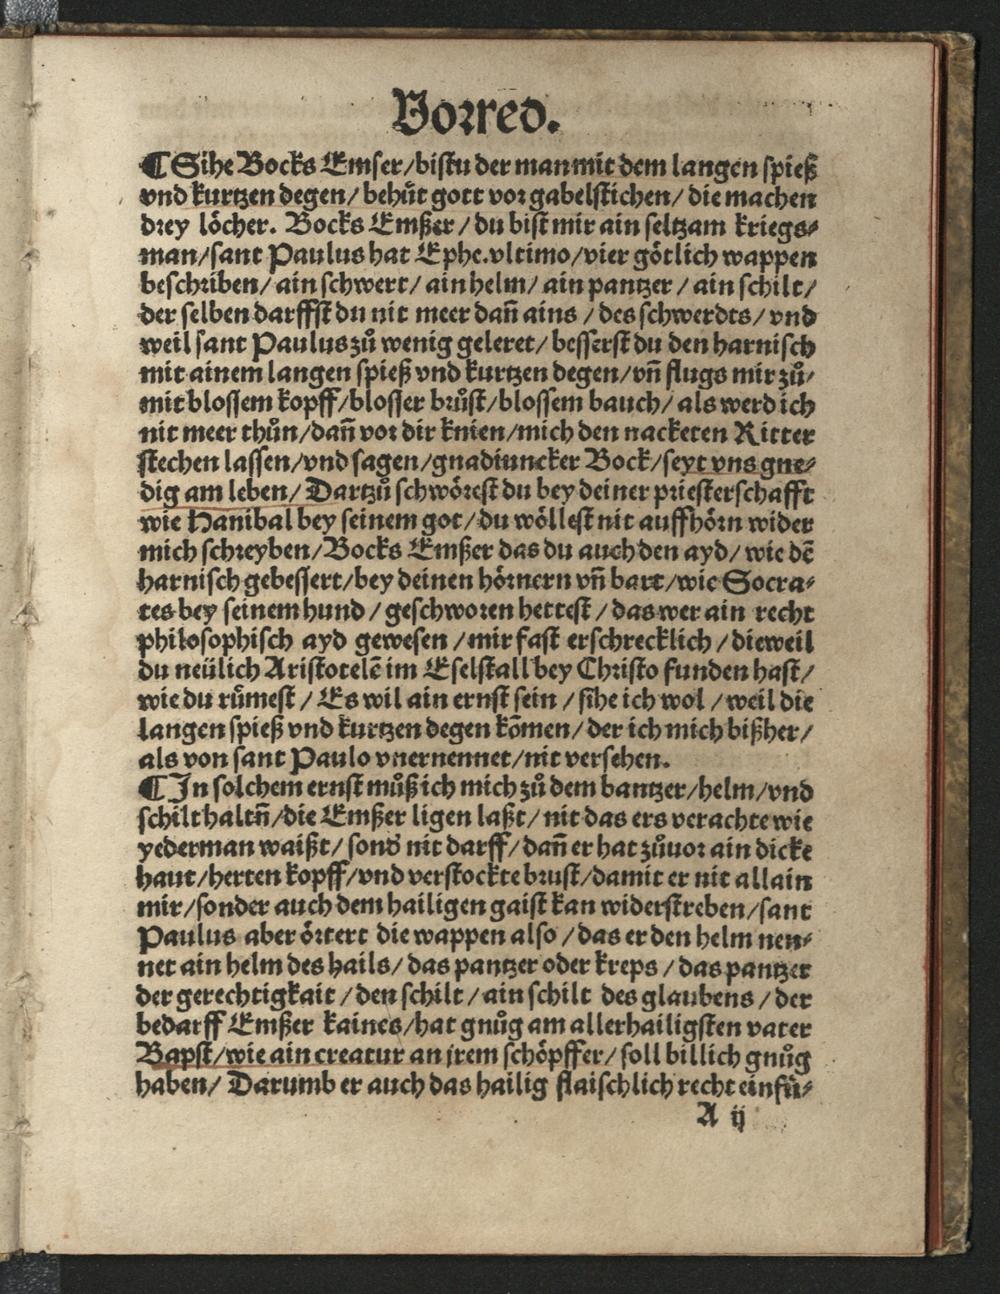 Vorred.
¶ Sihe Bocks Emser/bistu der man mit dem langen spieß
vnd kurtzen degen/ behuͤt gott vor gabelstichen/ die machen
drey loͤcher. Bocks Emßer / du bist mir ain seltzam kriegs⸗
man/sant Paulus hat Ephe.vltimo/vier goͤtlich wappen
beschriben/ ain schwert/ ain helm/ ain pantzer / ain schilt/
der selben darffst du nit meer dañ ains / des schwerdts/ vnd
weil sant Paulus zů wenig geleret/ besserst du den harnisch
mit ainem langen spieß vnd kurtzen degen/vñ flugs mir zů/
mit blossem kopff/blosser brůst/blossem bauch/ als werd ich
nit meer thůn/dañ vor dir knien/mich den nacketen Ritter
stechen lassen/vnd sagen/gnad iuncker Bock/seyt vns gne⸗
dig am leben/ Dartzů schwoͤrest du bey deiner priesterschafft
wie Hanibal bey seinem got/du woͤllest nit auffhoͤrn wider
mich schreyben/Bocks Emßer das du auch den ayd/ wie dē
harnisch gebessert/bey deinen hoͤrnern vñ bart/wie Socra⸗
tes bey seinem hund / geschworen hettest / das wer ain recht
philosophisch ayd gewesen /mir fast erschrecklich / dieweil
du neülich Aristotelē im Eselstall bey Christo funden hast/
wie du ruͤmest / Es wil ain ernst sein / sihe ich wol / weil die
langen spieß vnd kurtzen degen kōmen/ der ich mich bißher/
als von sant Paulo vnernennet/nit versehen.
¶ In solchem ernst můß ich mich zů dem bantzer/helm/vnd
schilt haltñ/die Emßer ligen laßt/ nit das ers verachte wie
yederman waißt/ sond̄ nit darff/ dañ er hat zůuor ain dicke
haut/herten kopff/vnd verstockte brust/damit er nit allain
mir/sonder auch dem hailigen gaist kan widerstreben/sant
Paulus aber oͤrtert die wappen also / das er den helm nen⸗
net ain helm des hails/ das pantzer oder kreps / das pantzer
der gerechtigkait / den schilt / ain schilt des glaubens / der
bedarff Emßer kaines/hat gnůg am allerhailigsten vater
Bapst/wie ain creatur an irem schoͤpffer/ soll billich gnůg
haben/ Darumb er auch das hailig flaischlich recht einfuͤ⸗
A ij